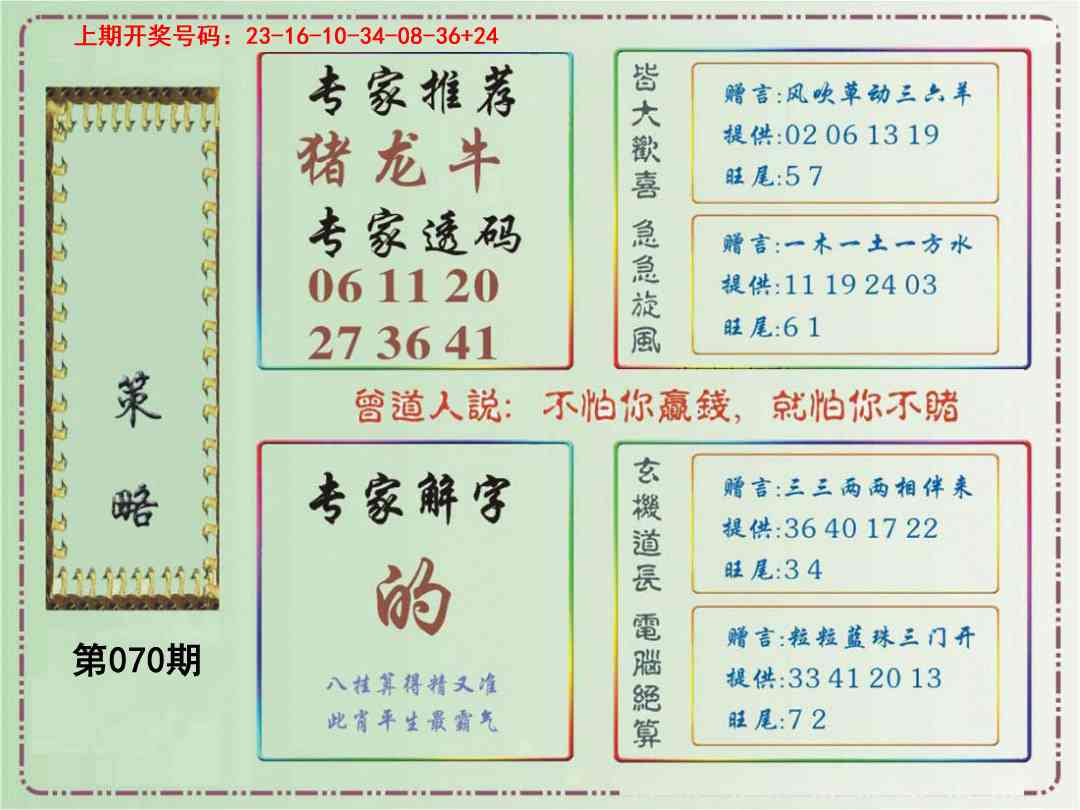 上期开奖号码：23-16-10-34-08-36+24
策略
第070期
专家推荐
猪龙牛
专家透码
06 11 20
27 36 41
皆大歡喜
赠言:风吹草动三六羊
提供:02 06 13 19
旺尾:5 7
急急旋風
赠言:一木一土一方水
提供:11 19 24 03
旺尾:6 1
曾道人説：不怕你贏錢，就怕你不賭
专家解字
的
八桂算得精又准
此肖平生最霸气
玄機道長
赠言:三三两两相伴来
提供:36 40 17 22
旺尾:3 4
電腦絕算
赠言:粒粒蓝珠三门开
提供:33 41 20 13
旺尾:7 2